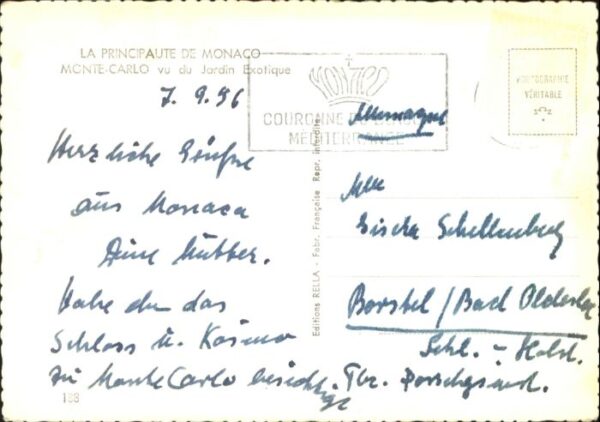 LA PRINCIPAUTE DE MONACO
MONTE-CARLO vu du Jardin Exotique
7.9.56
Herzliche Grüße
aus Monaca
Deine Mutter.
Habe du das
Schloss u. Kasino
zu Monte Carlo besichtigt
138
MONACO
COURONNE
MEDITERRANEE
Allemagne
PHOTOGRAPHIE
VÉRITABLE
Editions RELLA - Fabr. Française Repr. interdite
Mlle
Gisela Schellenberg
Borstel / Bad Oldesloe
Schl. - Holst.